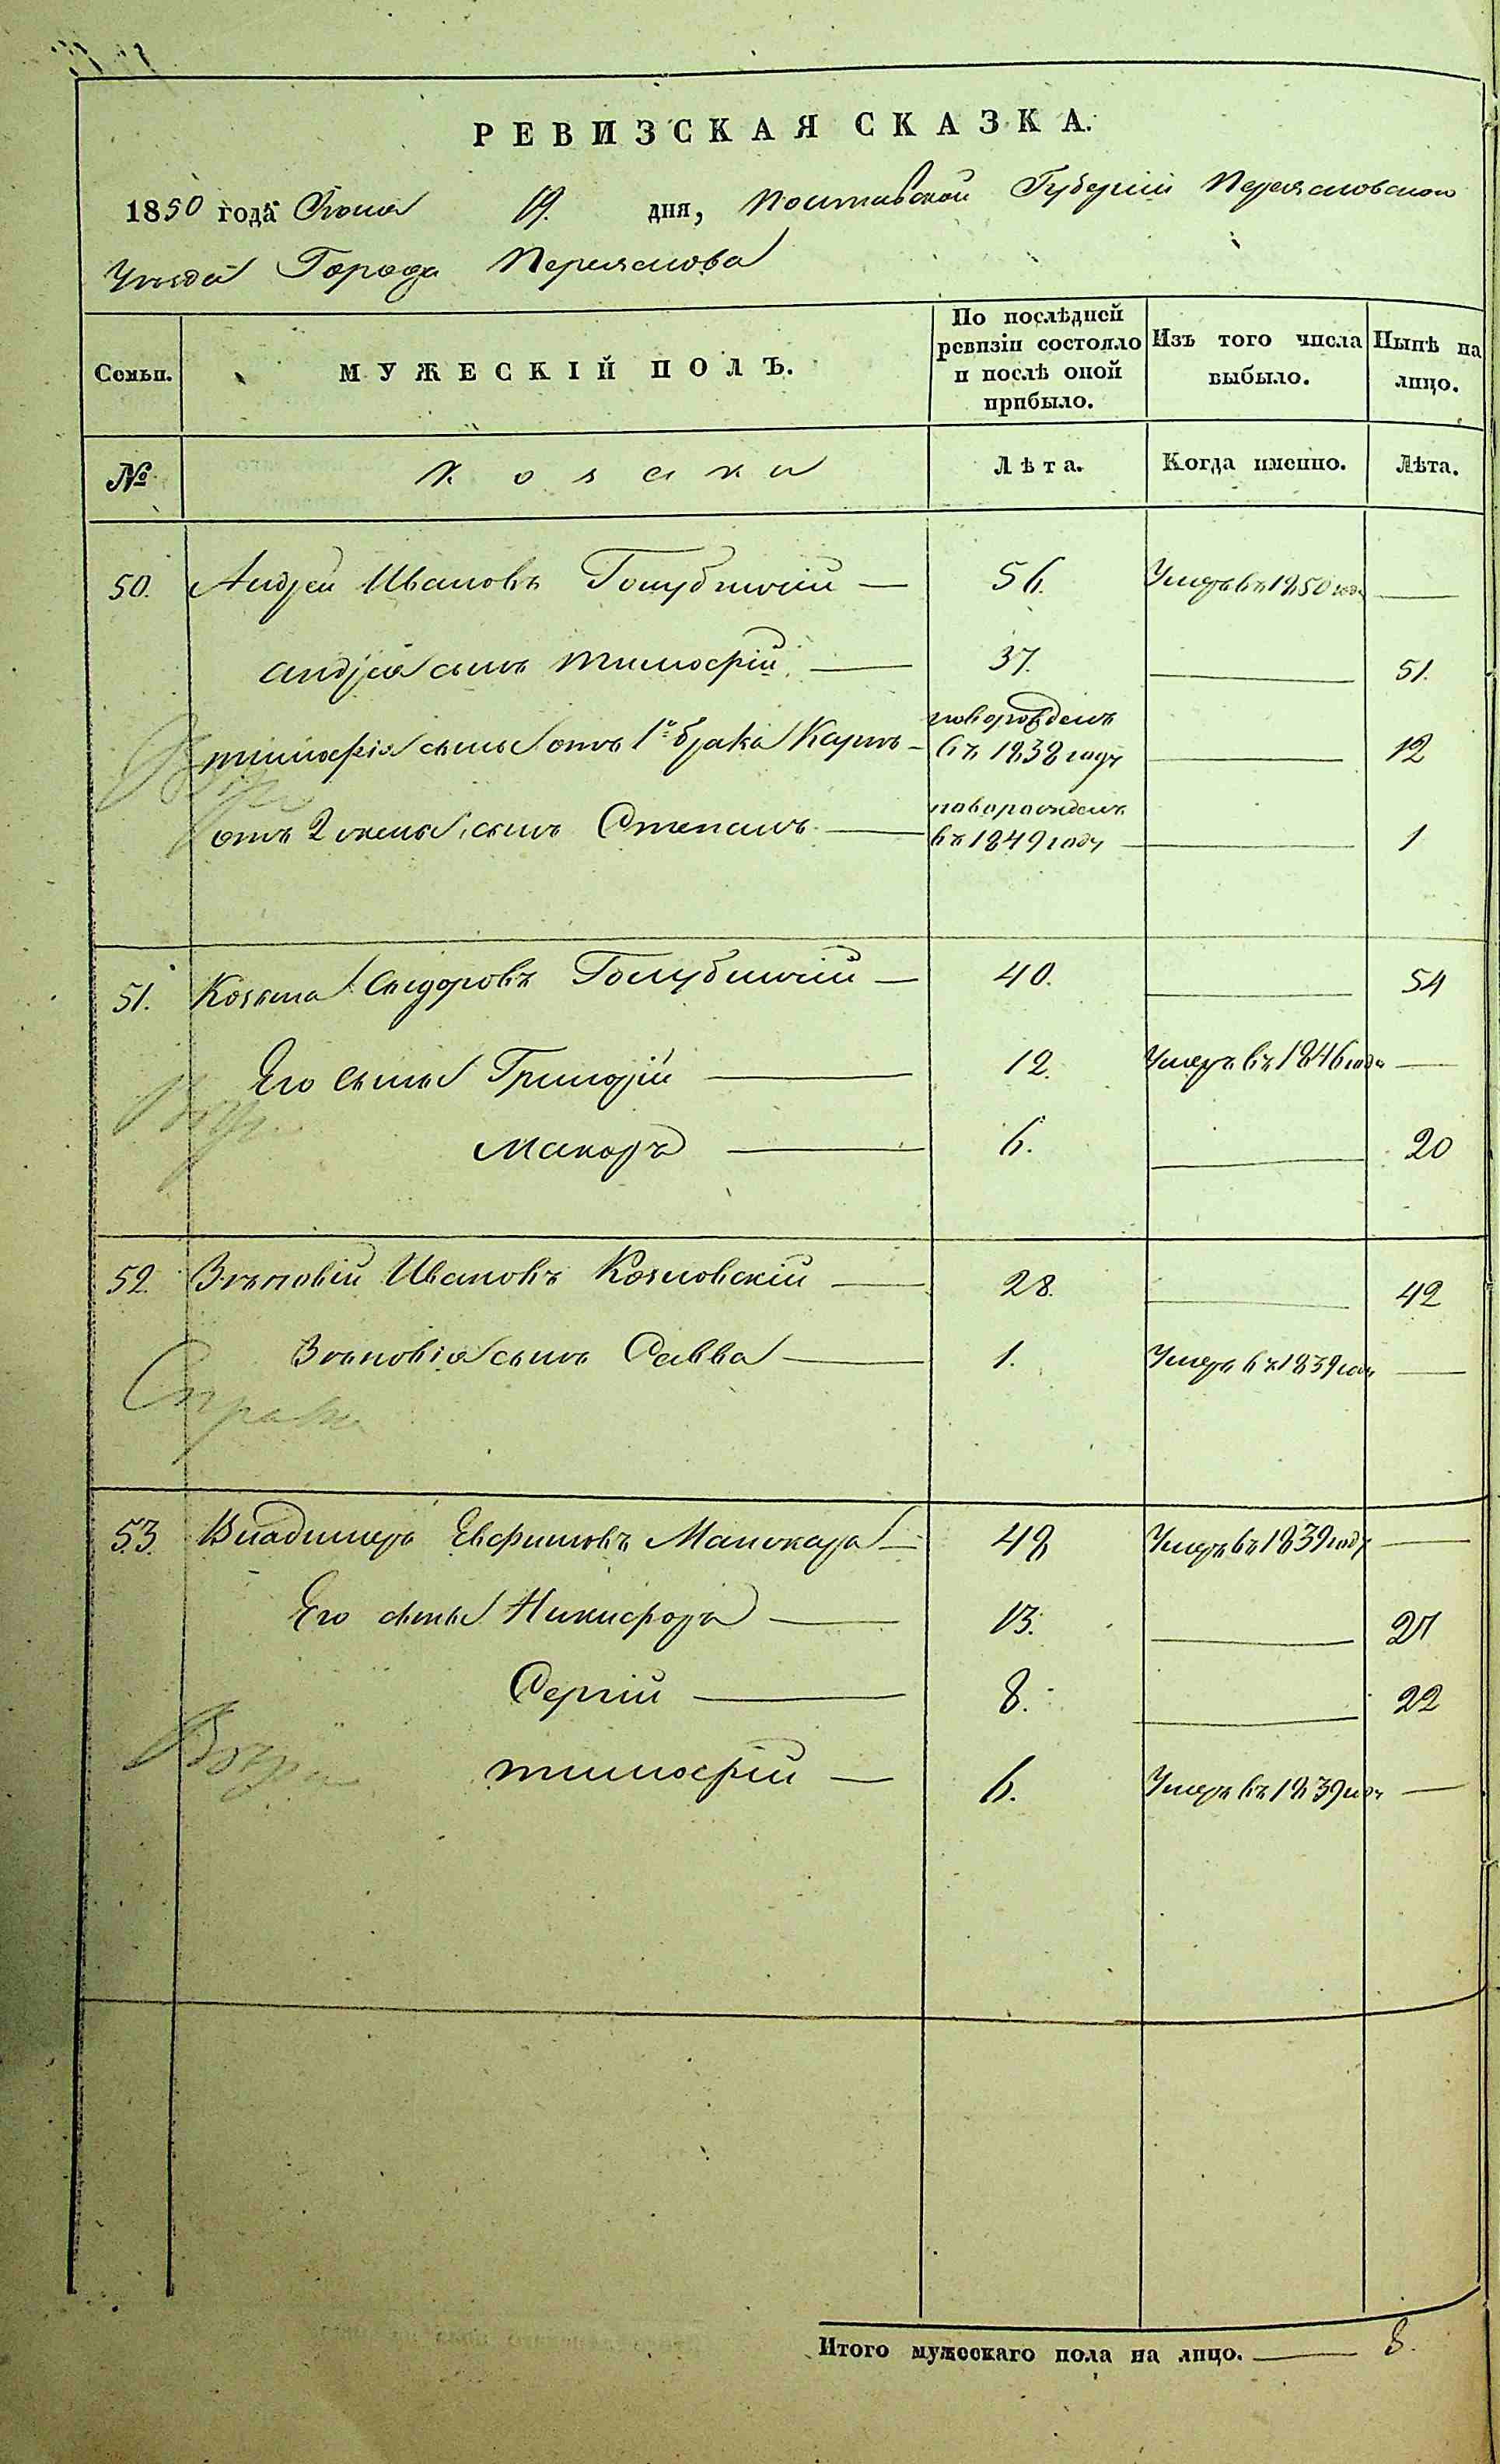 РЕВИЗСКАЯ СКАЗКА.
1850 года Июня 19. дня, Полтавской Губерніи Переясловского
Уезда Города Переяслова
Семьи. МУЖЕСКІЙ ПОЛЪ. По послѣдней ревизіи состояло и послѣ оной прибыло. Изъ того числа выбыло. Нынѣ на лицо.
№ Козаки Лѣта. Когда именно. Лѣта.
50. Андрей Ивановъ Голубничій — 56. Умеръ въ 1850 годе —
Андрея сынъ Тимофій — 37. — 51.
новорожденъ
Тимофія сынъ отъ 1го брака Карпъ — въ 1838 году — 12
новорожденъ
отъ 2 жены сынъ Степанъ — въ 1849 году — 1
51. Козьма Сидоровъ Голубничій — 40. — 54
Его сыны Григорій — 12. Умеръ въ 1846 годе —
Макаръ — 6. — 20
52. Зѣновій Ивановъ Козловскій — 28. — 42
Зѣновія сынъ Савва — 1. Умеръ въ 1839 году —
Справка
53. Владимеръ Евфимовъ Манжара — 48 Умеръ въ 1839 году —
Его сыны Никифоръ — 13. — 27
Сергій — 8. — 22
Тимофій — 6. Умеръ въ 1839 году —
Итого мужескаго пола на лицо. — 8.